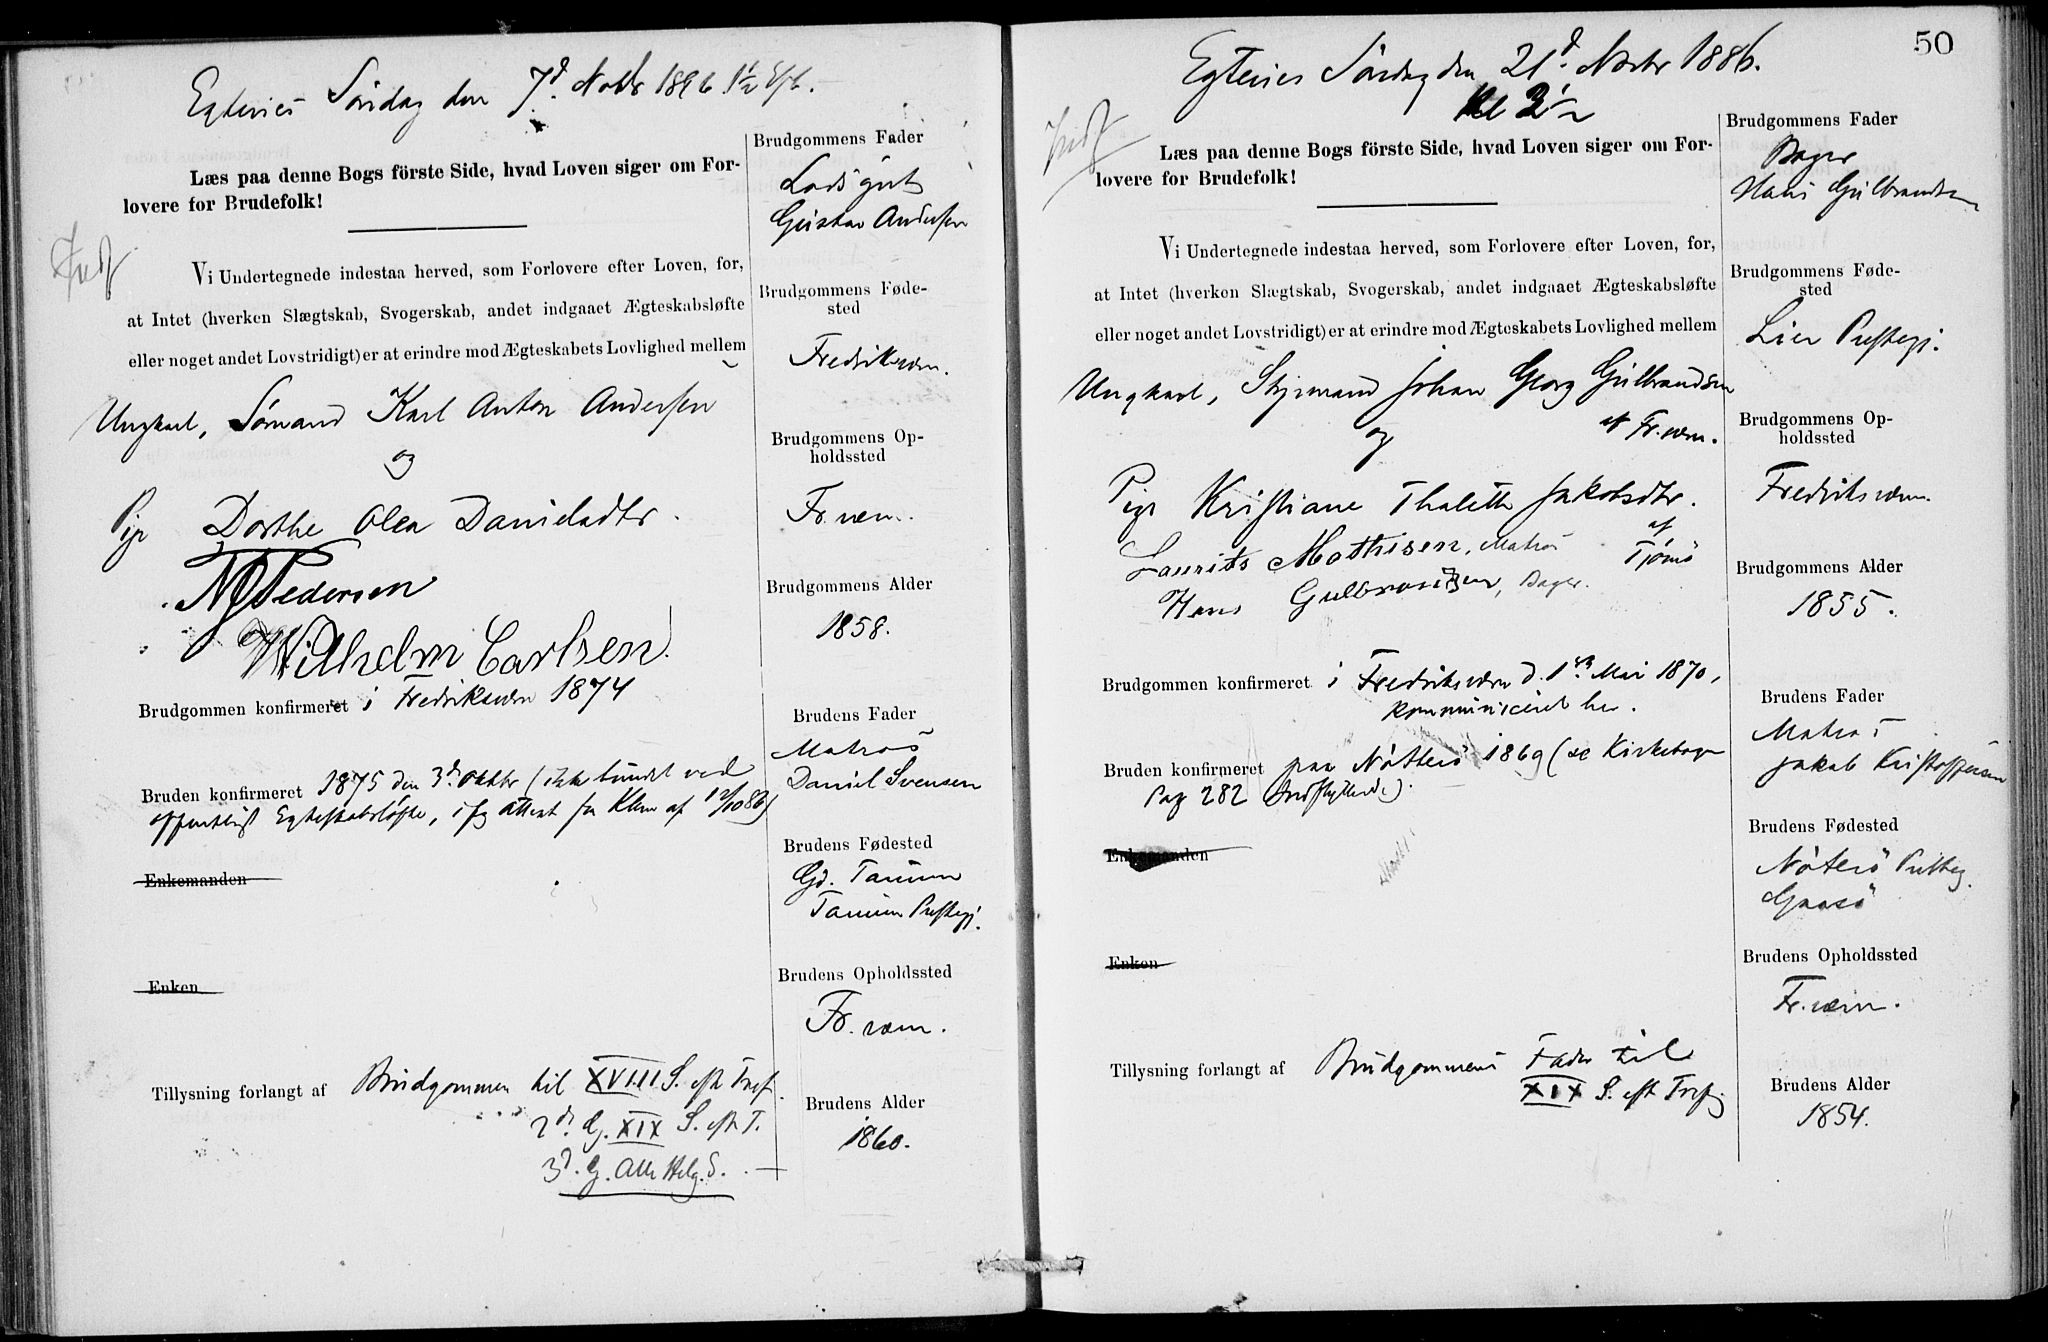 Egtevies Søndag den 7d. Novbr 1886 1½ Eft.
Læs paa denne Bogs förste Side, hvad Loven siger om For-
lovere for Brudefolk!
Indf
Vi Undertegnede indestaa herved, som Forlovere efter Loven, for,
at Intet (hverken Slægtskab, Svogerskab, andet indgaaet Ægteskabsløfte
eller noget andet Lovstridigt) er at erindre mod Ægteskabets Lovlighed mellem
Ungkarl, Sømand Karl Anton Andersen
og
Pige Dorthe Olea Danielsdtr.
Pedersen
Wilhelm Carlsen.
Brudgommen konfirmeret i Fredriksværn 1874
Bruden konfirmeret 1875 den 3d Oktbr (ikke bundet ved
offentligt Egteskabsløfte, ifg Attest fra Klvn af 12/10 86)
Enkemanden
Enken
Tillysning forlangt af Brudgommen til XVIII S. eft Tref.
2d. G. XIX S. eft T.
3d. G. Alle Helg. S.
Brudgommens Fader
Lodsgut
Gustav Andersen
Brudgommens Føde-
sted
Fredriksværn.
Brudgommens Op-
holdssted
Fr.værn.
Brudgommens Alder
1858.
Brudens Fader
Matros
Daniel Svensen
Brudens Fødested
Gd. Tanum
Tanum Prestegj.
Brudens Opholdssted
Fr.værn.
Brudens Alder
1860.
50
Egtevies Søndag den 21d. Novbr 1886.
Kl 3½
Indf
Læs paa denne Bogs förste Side, hvad Loven siger om For-
lovere for Brudefolk!
Vi Undertegnede indestaa herved, som Forlovere efter Loven, for,
at Intet (hverken Slægtskab, Svogerskab, andet indgaaet Ægteskabsløfte
eller noget andet Lovstridigt) er at erindre mod Ægteskabets Lovlighed mellem
Ungkarl, Styrmand Johan Georg Gulbrandsen
og af Fr.værn.
Pige Kristiane Thalette Jakobsdtr.
af
Laurits Mathisen, Matros Tjømö
Hans Gulbrandsen, Bager.
Brudgommen konfirmeret i Fredriksværn d. 1ste Mai 1870,
kommuniceret her.
Bruden konfirmeret paa Nötterö 1869 (se Kirkebogen
Pag 282 Indflyttede).
Enkemanden
Enken
Tillysning forlangt af Brudgommens Fader til
XIX S. eft Tref
Brudgommens Fader
Bager
Hans Gulbrandsen
Brudgommens Føde-
sted
Lier Prestegj.
Brudgommens Op-
holdssted
Fredriksværn.
Brudgommens Alder
1855.
Brudens Fader
Matros
Jakob Kristoffersen
Brudens Fødested
Nöterö Presteg.
Gaasö
Brudens Opholdssted
Fr.værn.
Brudens Alder
1854.